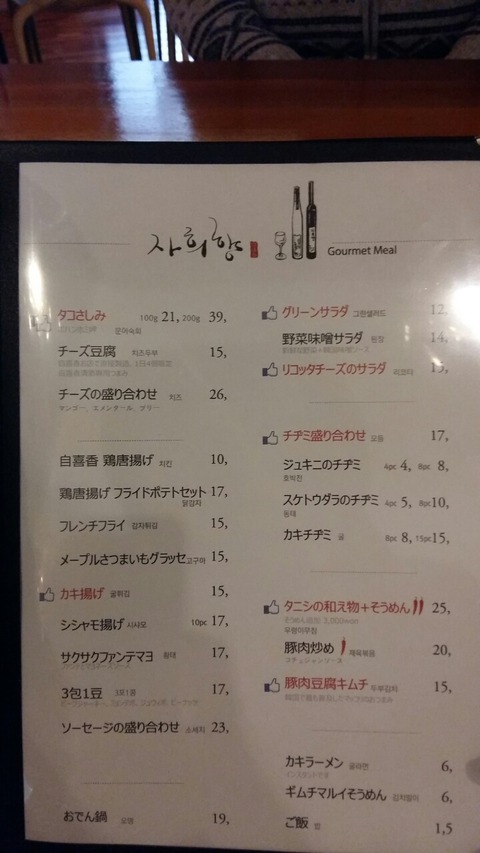 자희향
Gourmet Meal
タコさしみ 100g 21, 200g 39,
문어숙회
チーズ豆腐 치즈두부 15,
チーズの盛り合わせ 치즈 26,
マンゴー、エメンタール、ブリー
自喜香 鶏唐揚げ 치킨 10,
鶏唐揚げ フライドポテトセット 17,
닭감자
フレンチフライ 감자튀김 15,
メープルさつまいもグラッセ 고구마 15,
カキ揚げ 굴튀김 15,
シシャモ揚げ 시샤모 10pc 17,
サクサクファンテマヨ 황태 17,
3包1豆 3포1콩 17,
ソーセージの盛り合わせ 소세지 23,
おでん鍋 오뎅 19,
グリーンサラダ 그린샐러드 12,
野菜味噌サラダ 된장 14,
リコッタチーズのサラダ 리코타 15,
チヂミ盛り合わせ 모듬 17,
ジュキニのチヂミ 4pc 4, 8pc 8,
호박전
スケトウダラのチヂミ 4pc 5, 8pc 10,
동태
カキチヂミ 굴 8pc 8, 15pc 15,
タニシの和え物+そうめん 25,
우렁이무침
豚肉炒め 제육볶음 20,
コチュジャンソース
豚肉豆腐キムチ 두부김치 15,
カキラーメン 굴라면 6,
インスタントです
ギムチマルイそうめん 김치말이 6,
ご飯 밥 1,5